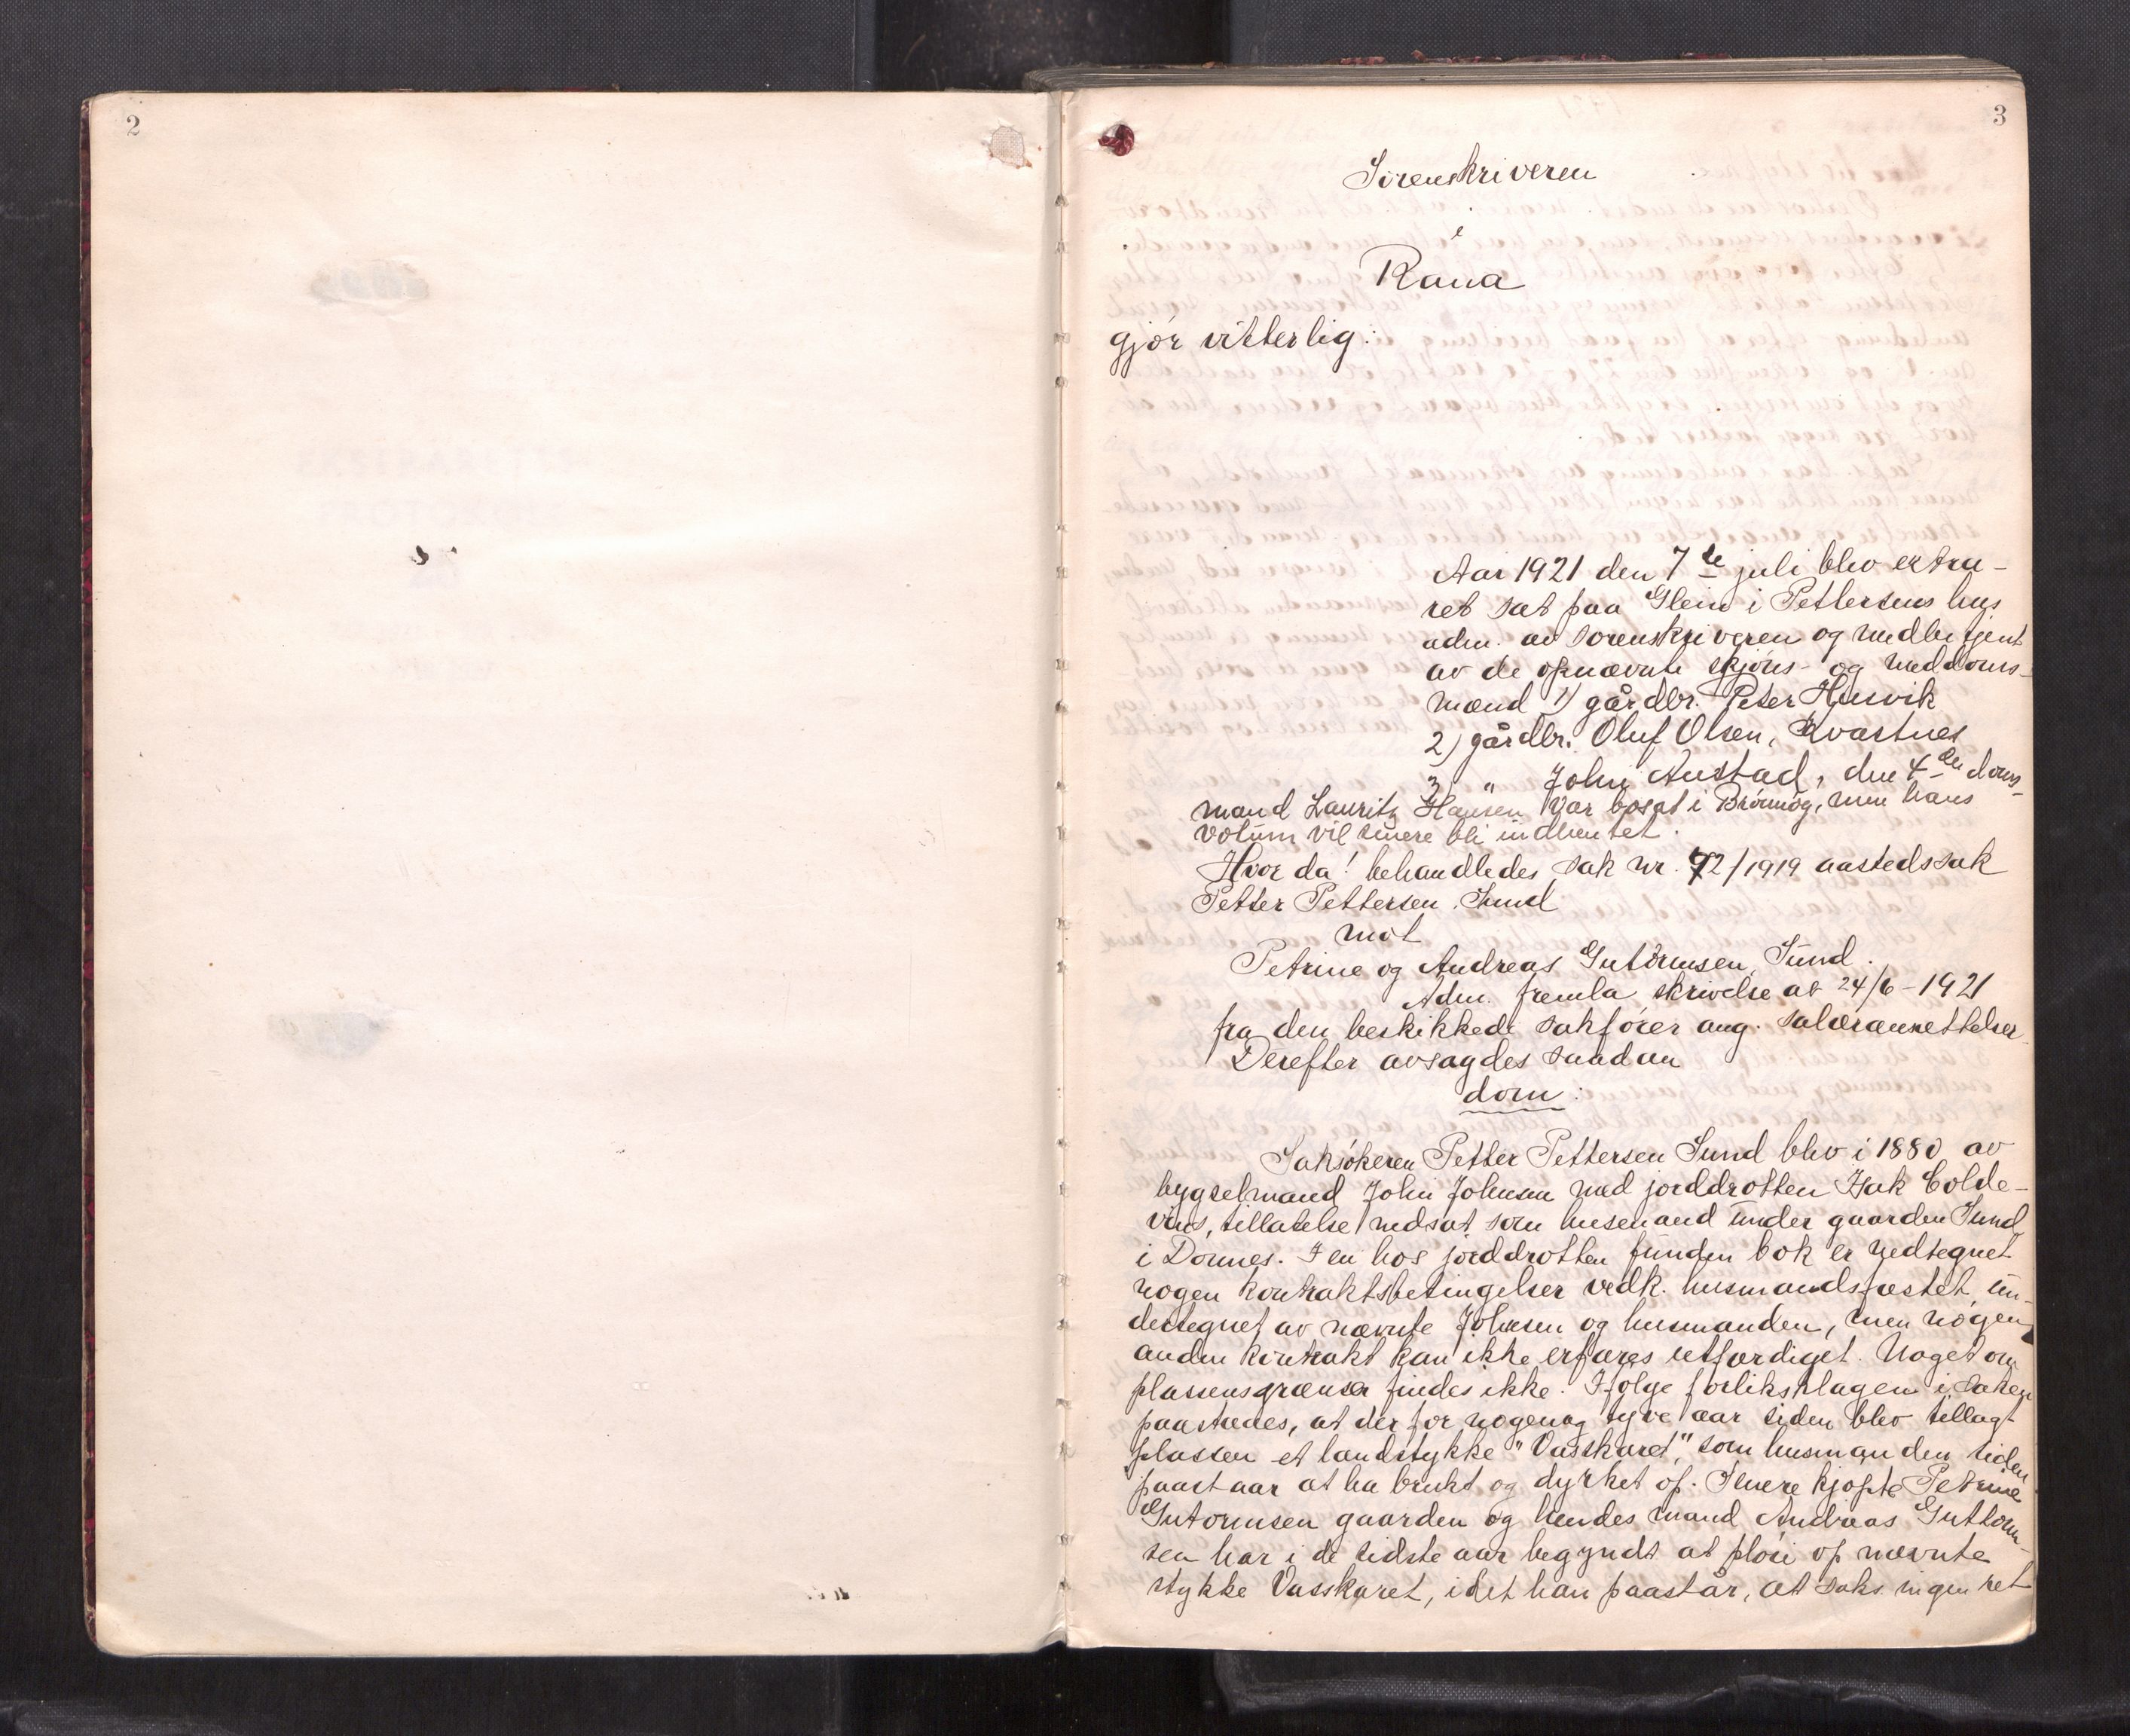 2
3
Sorenskriveren
i
Rana
gjør vitterlig:
Aar 1921 den 7de juli blev extra-
ret sat paa Glein i Pettersens hus
adm. av sorenskriveren og medbetjent
av de opnævnte skjøns- og meddoms-
mænd 1) gårdbr. Peter Husvik
2) gårdbr. Oluf Olsen, Kvastnes
3 " John Austad, den 4de doms-
mand Lauritz Hansen var bosat i Brønnøy, men hans
votum vil senere bli indhentet.
Hvor da! behandledes sak nr. 72/1919 aastedssak
Petter Pettersen Sund
mot
Petrine og Andreas Gutormsen, Sund.
Adm. fremla skrivelse av 24/6-1921
fra den beskikkede sakfører ang. salæransettelser
Derefter avsagdes saadan
dom:
Saksøkeren Petter Pettersen Sund blev i 1880 av
bygselmand John Johnsen med jorddrotten Isak Colde-
vins, tillatelse indsat som husmand under gaarden Sund
i Dønnes. I en hos jorddrotten funden bok er nedtegnet
nogen kontraktsbetingelser vedk. husmandsfæstet, un-
dertegnet av nævnte Johnsen og husmanden, men nogen
anden kontrakt kan ikke erfares utfærdiget. Noget om
plassens grænser findes ikke. Ifølge forliksklagen i saken
paastaaes, at der for nogenog tyve aar siden blev tillagt
plassen et landstykke "Vasskaret," som husmanden siden
paastaar at ha brukt og dyrket op. Senere kjøpte Petrine
Gutormsen gaarden og hendes mand Andreas Guttorm-
sen har i de sidste aar begyndt at pløie op nævnte
stykke Vasskaret, idet han paastår, at saks. ingen ret